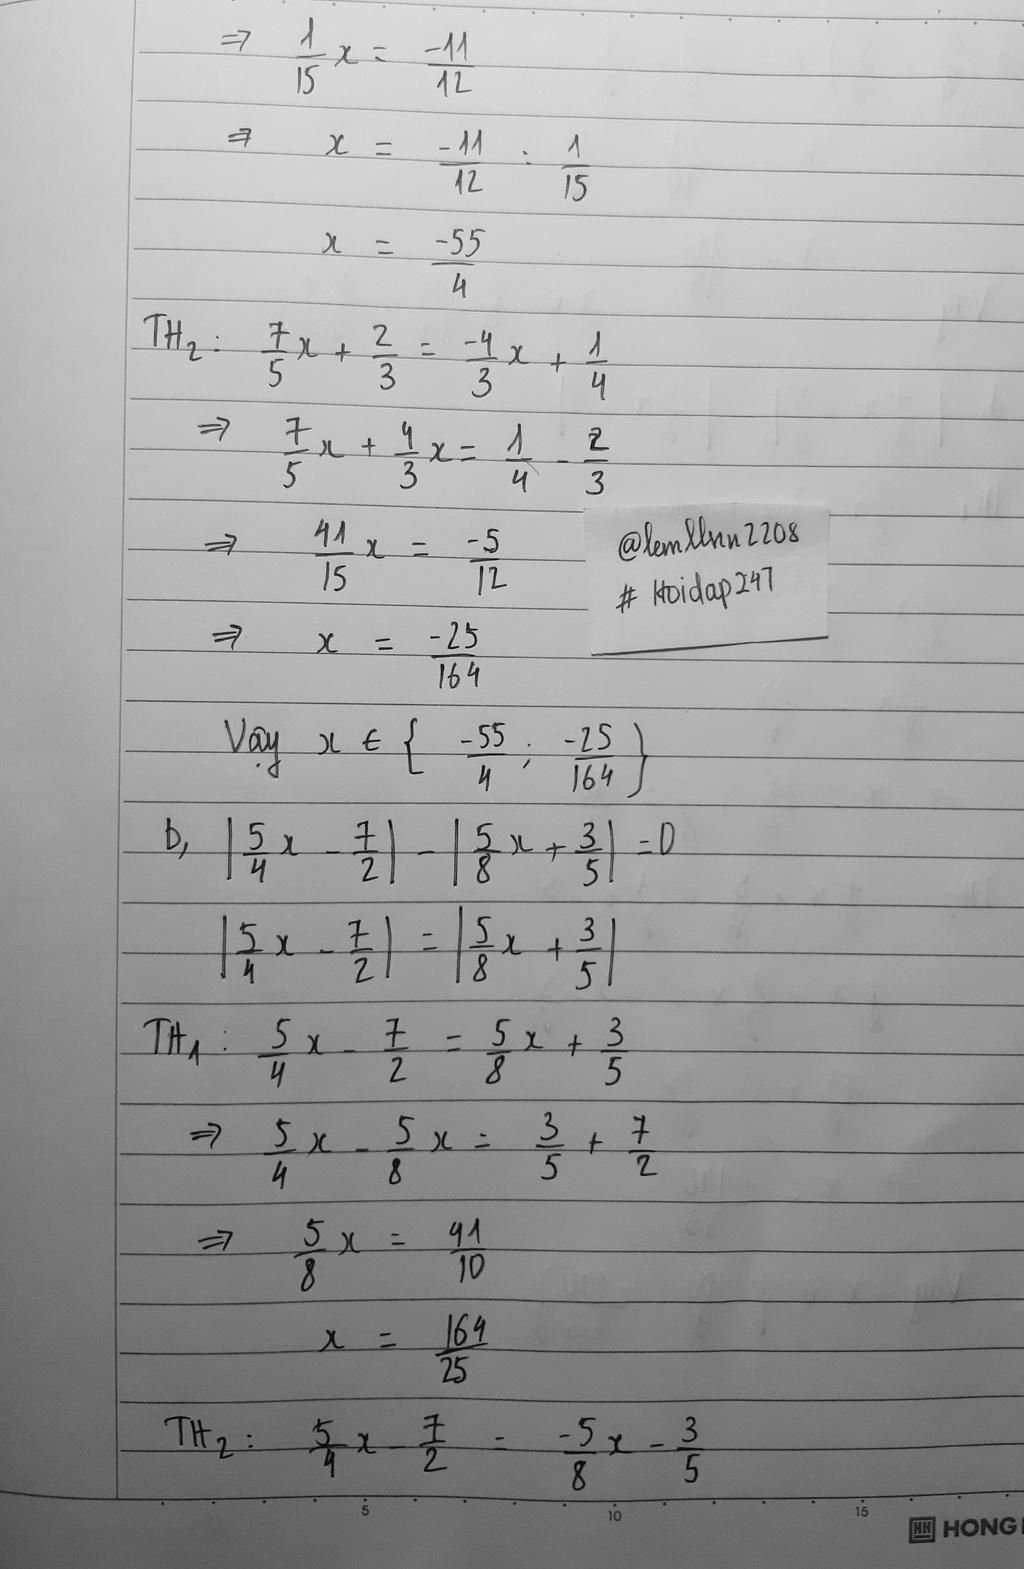 ⇒ 1/15 x = -11/12
⇒ x = -11/12 : 1/15
x = -55/4
TH₂: 7/5 x + 2/3 = -4/3 x + 1/4
⇒ 7/5 x + 4/3 x = 1/4 - 2/3
⇒ 41/15 x = -5/12
@lemllnn2208
# Hoidap247
⇒ x = -25/164
Vậy x ∈ { -55/4 ; -25/164 }
b, |5/4 x - 7/2| - |5/8 x + 3/5| = 0
|5/4 x - 7/2| = |5/8 x + 3/5|
TH₁: 5/4 x - 7/2 = 5/8 x + 3/5
⇒ 5/4 x - 5/8 x = 3/5 + 7/2
⇒ 5/8 x = 41/10
x = 164/25
TH₂: 5/4 x - 7/2 = -5/8 x - 3/5
5 10 15
HH HONG